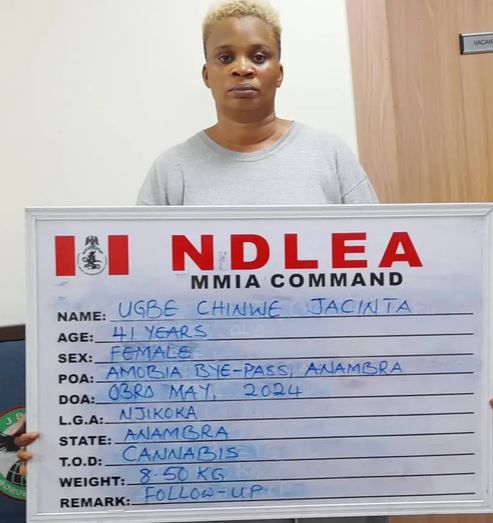 VACAN
NDLEA
MMIA COMMAND
NAME: UGBE CHINWE JACINTA
AGE: 41 YEARS
SEX: FEMALE
POA: AMOBIA BYE-PASS, ANAMBRA
DOA: 03RD MAY, 2024
L.G.A: NJIKOKA
STATE: ANAMBRA
T.O.D: CANNABIS
WEIGHT: 8.50 KG
REMARK: FOLLOW-UP